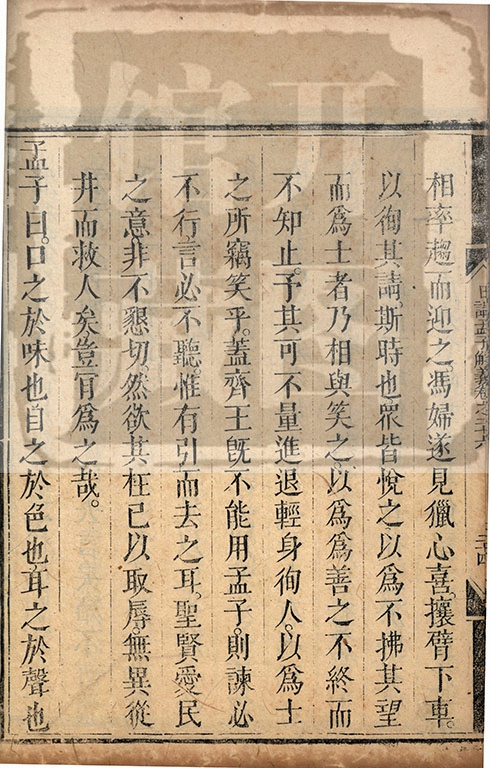 相率趨而迎之。馮婦遂見獵心喜。攘臂下車。
以徇其請。斯時也。眾皆悅之。以為不拂其望
而爲士者乃相與笑之。以爲爲善之不終而
不知止。予其可不量進退輕身徇人。以爲士
之所竊笑乎。蓋齊王旣不能用孟子。則諫必
不行。言必不聽。惟有引而去之耳。聖賢愛民
之意。非不懇切。然欲其枉己以取辱。無異從
井而救人矣。豈肎爲之哉。
孟子曰。口之於味也。目之於色也。耳之於聲也
日講孟子解義卷之二十六
二十四